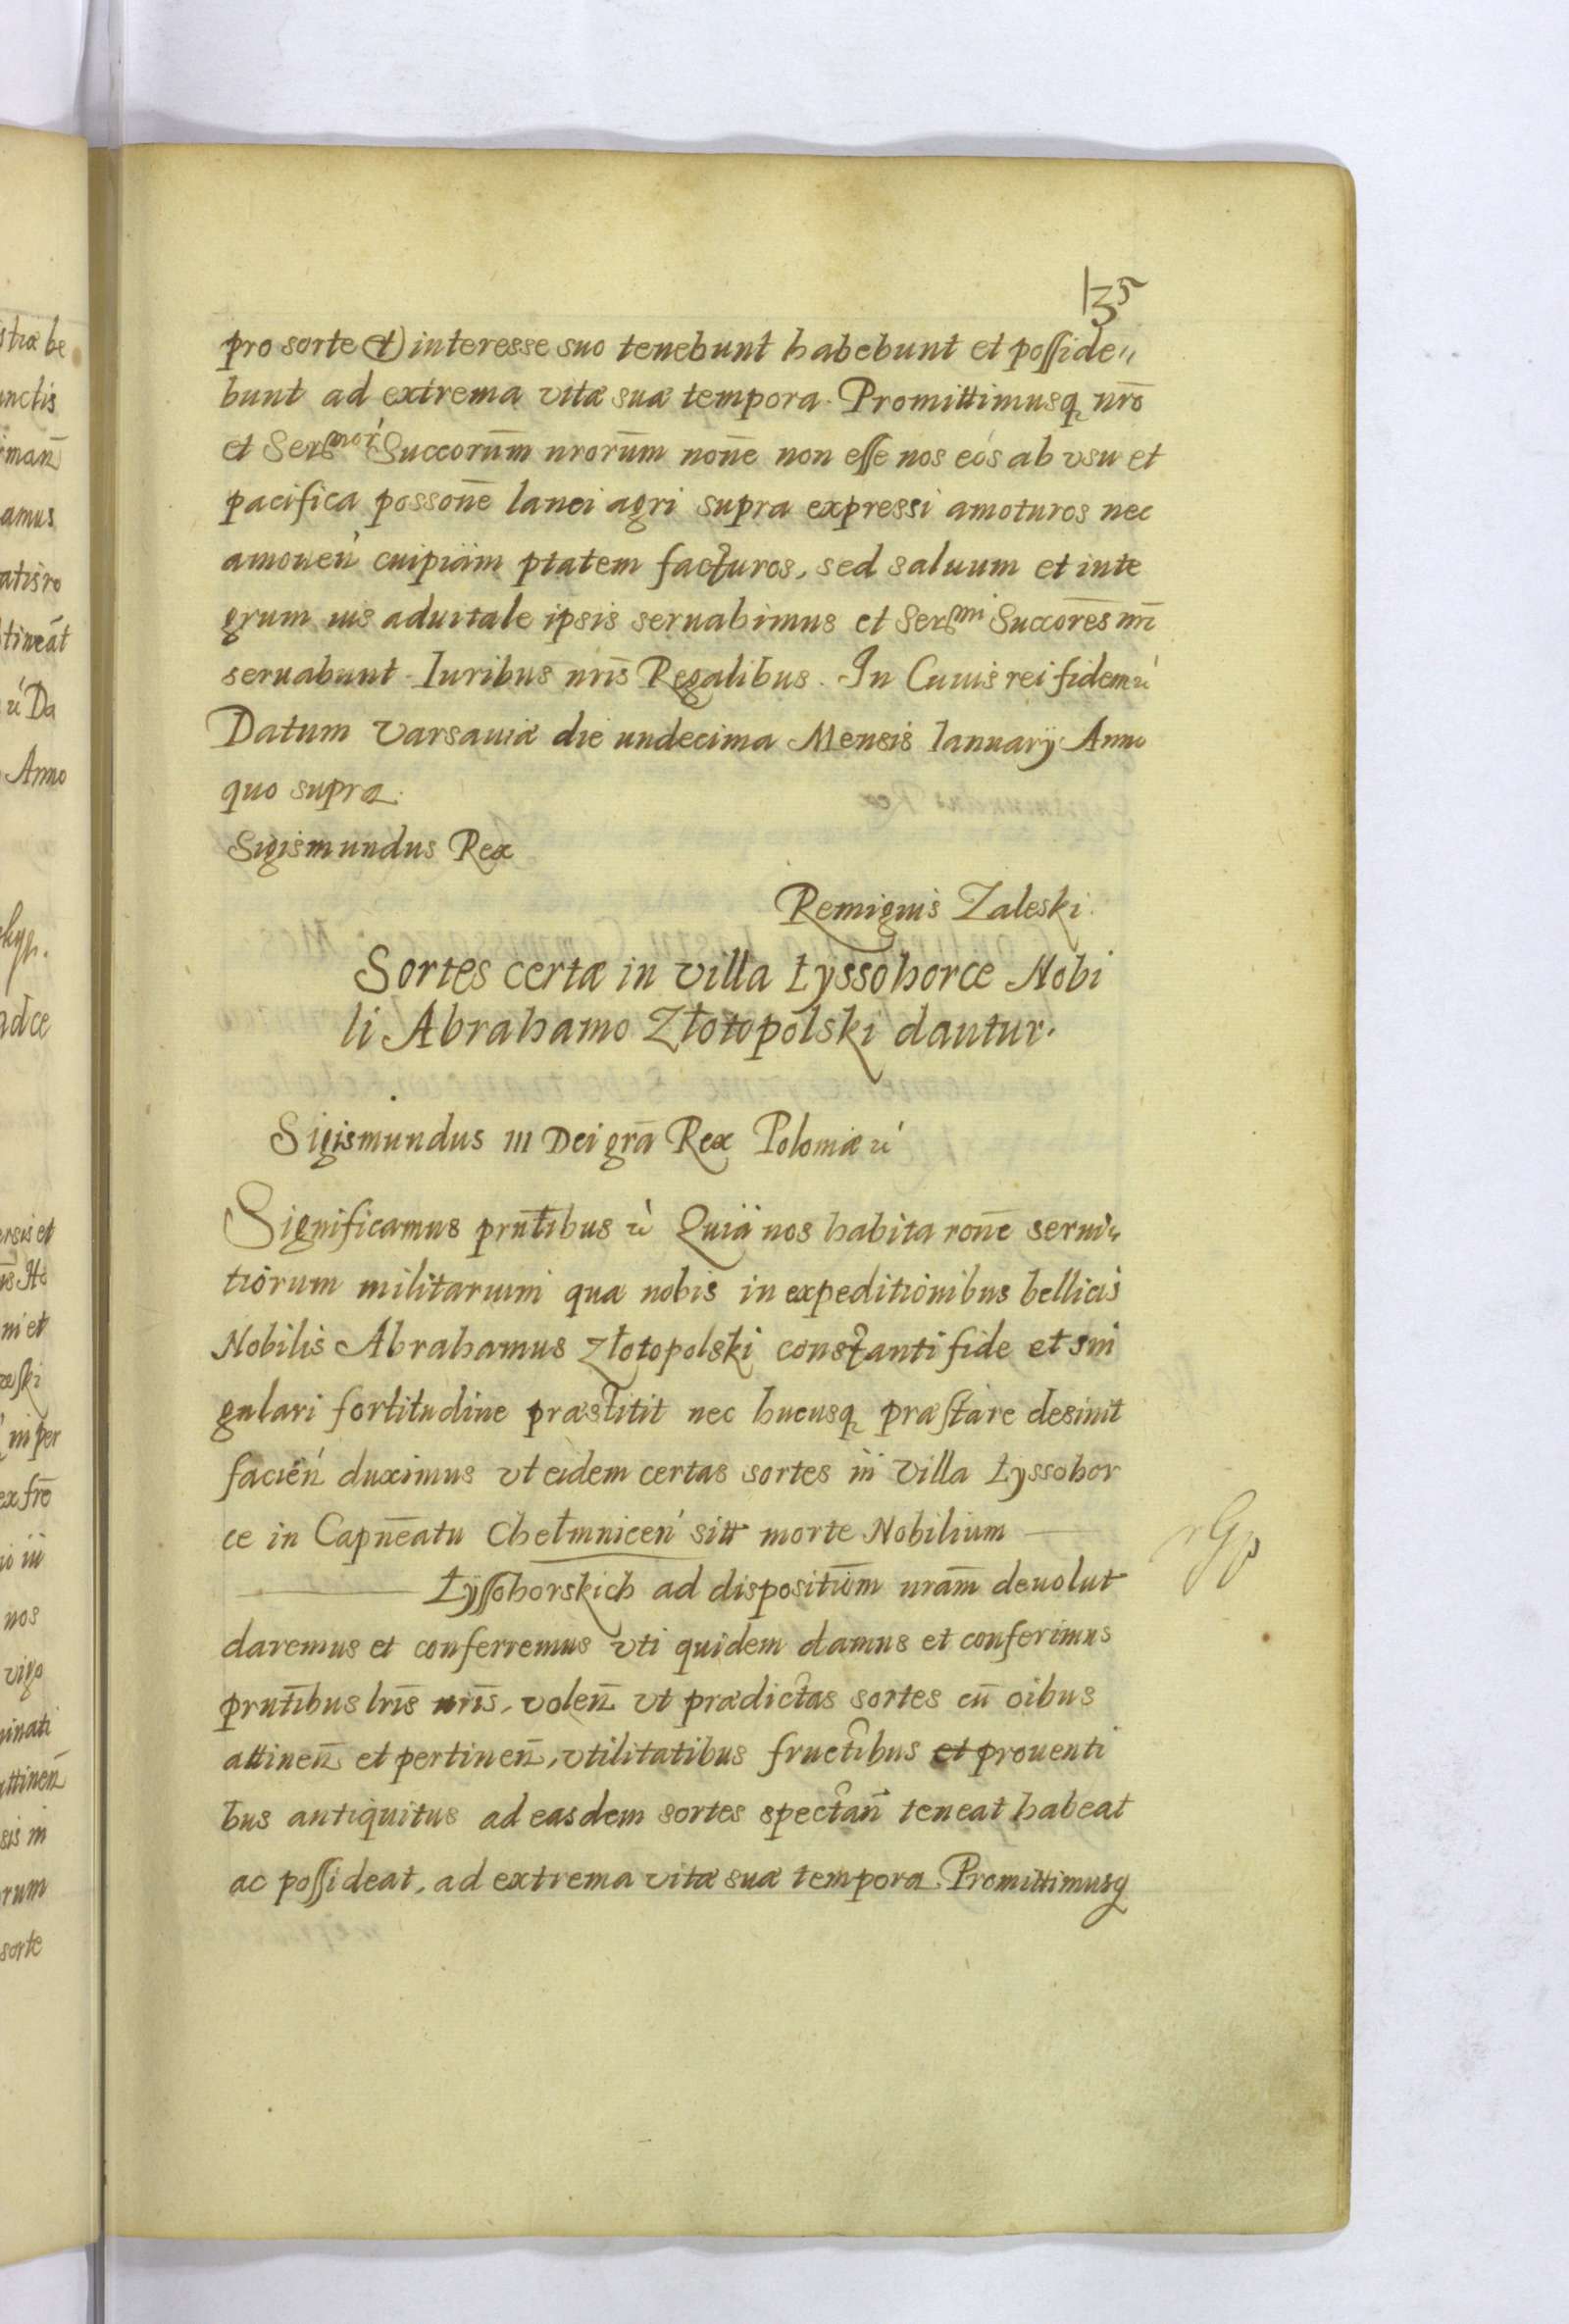 135
pro sorte et interesse suo tenebunt habebunt et posside„
bunt ad extrema vitæ suæ tempora. Promittimusq nr̄o
et Ser̄mor̄ Succorum̄ nrorum̄ non̄e non esse nos eos ab vsu et
pacifica posson̄e lanei agri supra expressi amoturos nec
amouen̄ cuipiam ptatem facturos, sed saluum et inte
grum ius aduitale ipsis seruabimus et Ser̄mi Succor̄es nr̄i
seruabunt. Iuribus nr̄is Regalibus. In Cuius rei fidem ꝛc̄
Datum Varsauiæ die undecima Mensis Ianuarÿ Anno
quo supra.
Sigismundus Rex
Remigius Zaleski.
Sortes certæ in villa Łyssohorce Nobi
li Abrahamo Złotopolski dantur.
Sigismundus III Dei gr̄a Rex Poloniæ ꝛc̄
Significamus prnt̄ibus ꝛc̄ Quia nos habita ron̄e serui„
tiorum militarium qua nobis in expeditionibus bellicis
Nobilis Abrahamus Złotopolski constanti fide et sin
gulari fortitudine præstitit nec hucusq præstare desinit
facien̄ duximus vt eidem certas sortes in Villa Łyssohor
ce in Capn̄eatu Chełmnicen̄ sitt morte Nobilium
Łyssohorskich ad disposition̄m nram̄ deuolut
daremus et conferremus vti quidem damus et conferimus
prnt̄ibus lr̄is nr̄is, volen̄ vt prædictas sortes cū oibus
attinen̄ et pertinen̄, vtilitatibus fructibus et prouenti
bus antiquitus ad easdem sortes spectan̄ teneat habeat
ac possideat, ad extrema vitæ suæ tempora. Promittimusq